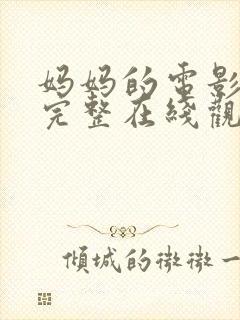 妈妈的電影
完整在綫觀
傾城的微微一